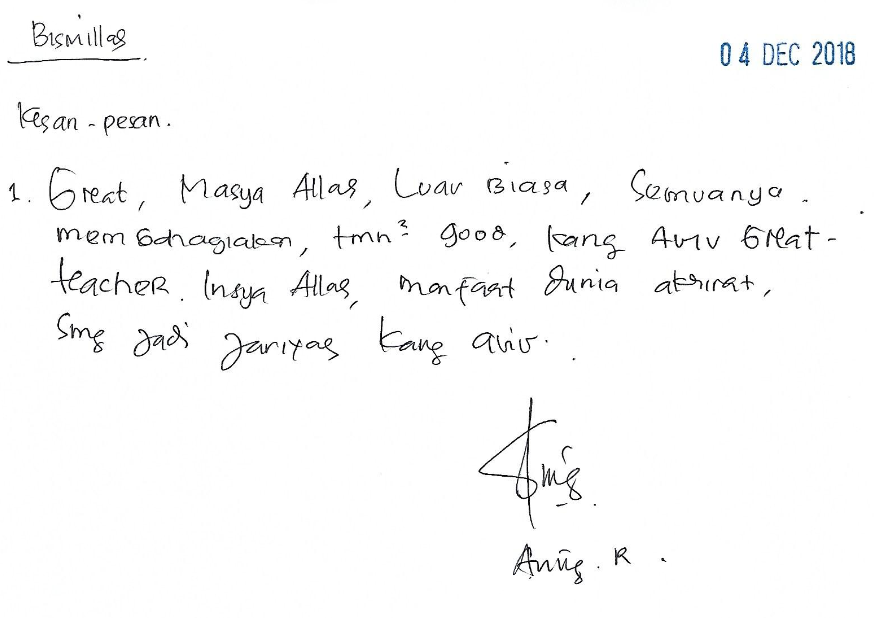 Bismillah
04 DEC 2018
Kesan - pesan.
1. Great, Masya Allah, Luar Biasa, Semuanya.
membahagiakan, tmn² good, kang Aviv Great-
teacher. Insya Allah, manfaat dunia akhirat,
smg jadi jariyah kang aviv.
R.